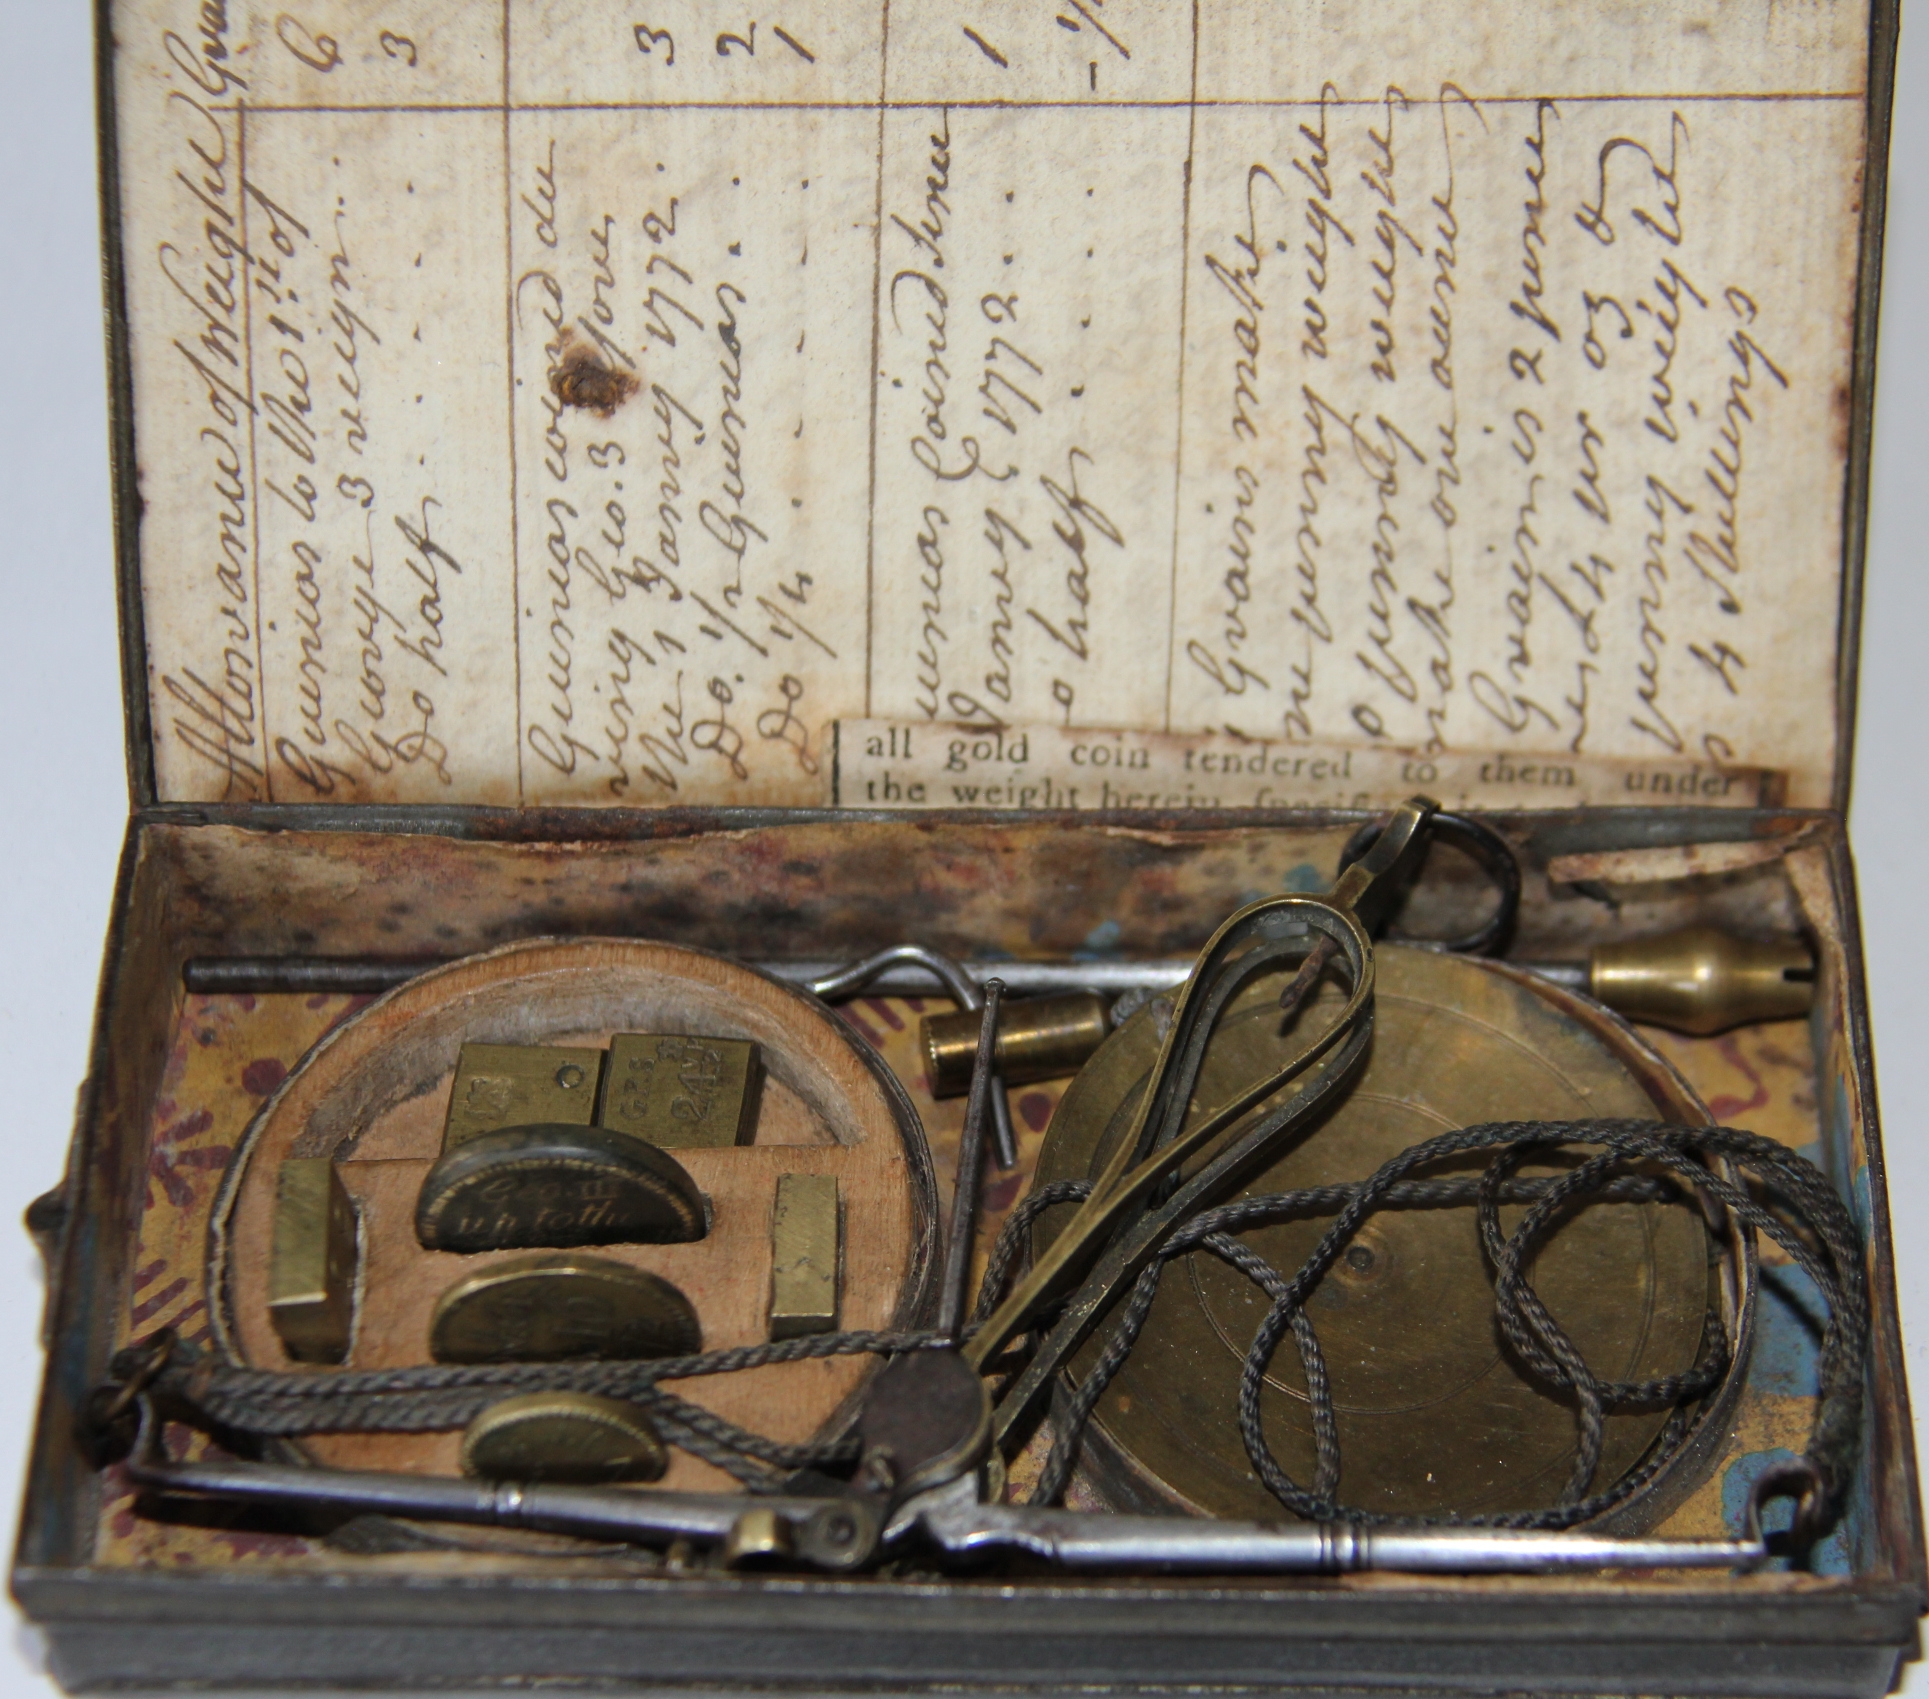 Allowance of Weight Gra
Guineas to the 1st of
George 3 reign . 6
Do half . . . . 3
Guineas coined du
ring Geo. 3 your
the 1 Janry 1772 . 3
Do. 1/2 Guineas . . 2
Do 1/4 . . . . 1
uineas Coined since
Janry 1772 . . 1
o half . . . - 1/
Grains make
ne penny weight
o penny weight
make one ounce
Grain is 2 pence
4 pr oz &
penny weight
s 4 Shillings
all gold coin tendered to them under
the weight herein
G.P.S
24
Geo. III